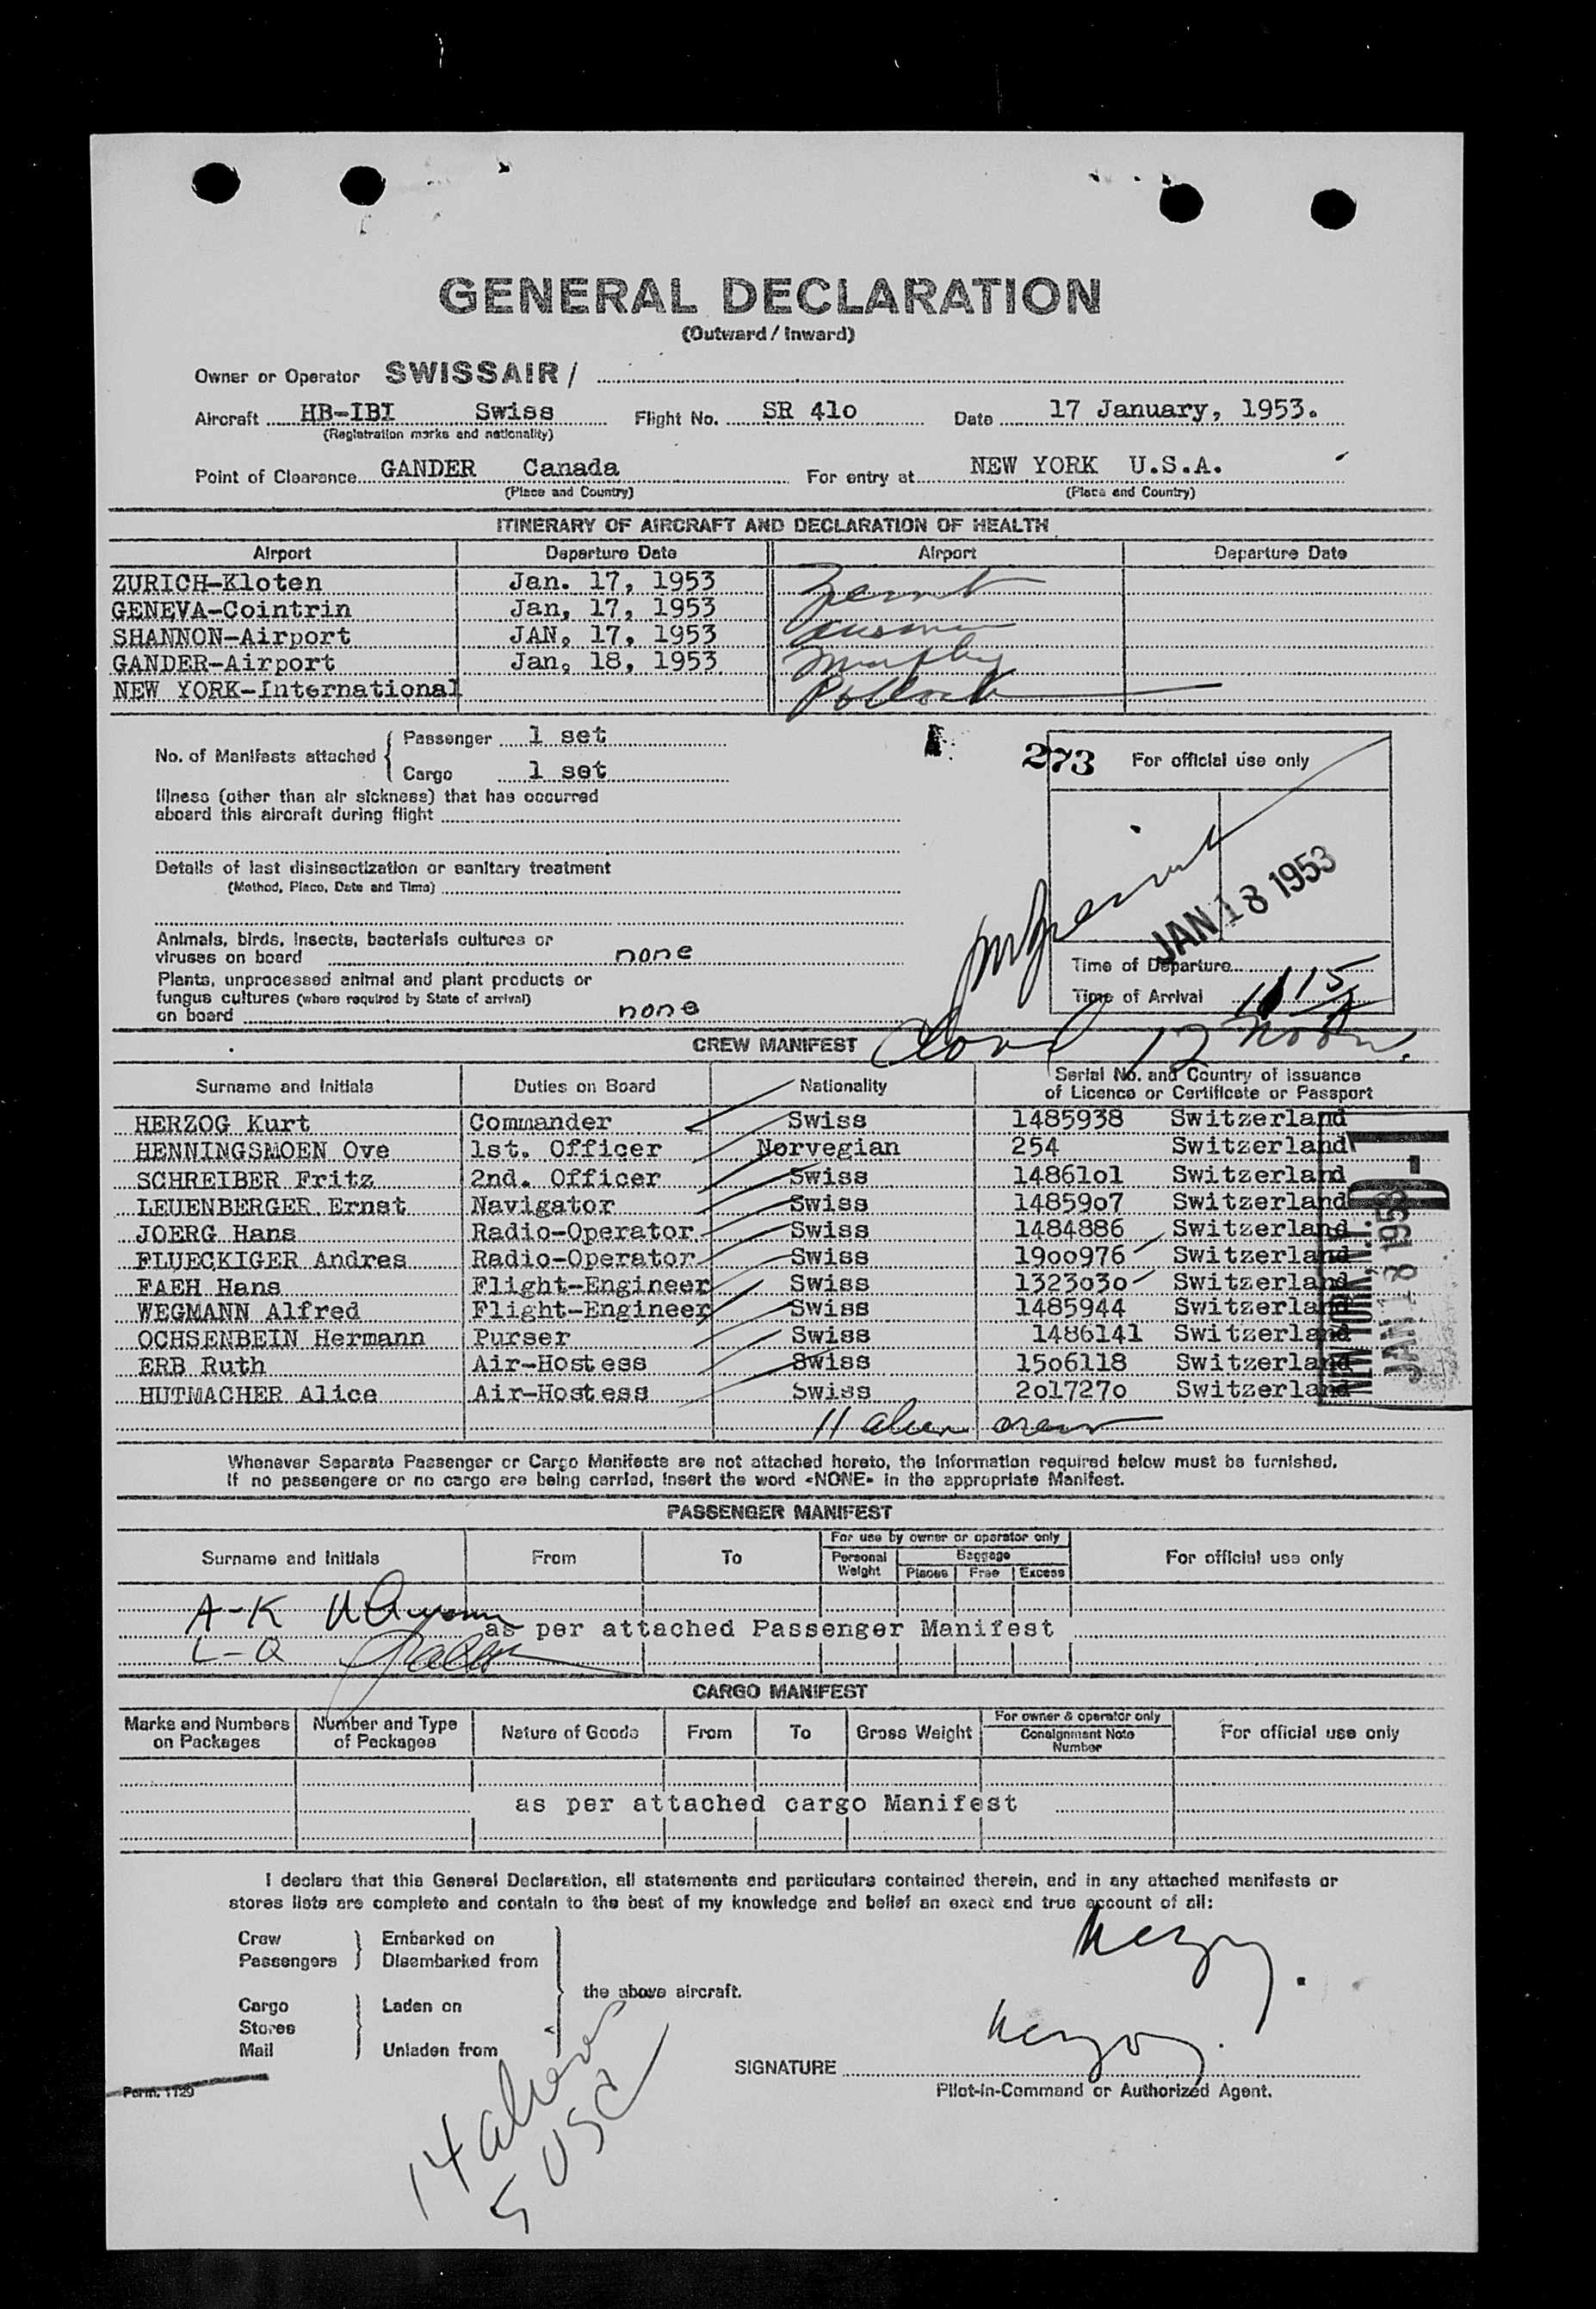 GENERAL DECLARATION
(Outward / Inward)
Owner or Operator SWISSAIR /
Aircraft HB-IBI Swiss Flight No. SR 41o Date 17 January, 1953.
(Registration marks and nationality)
Point of Clearance GANDER Canada For entry at NEW YORK U.S.A.
(Place and Country) (Place and Country)
ITINERARY OF AIRCRAFT AND DECLARATION OF HEALTH
Airport Departure Date Airport Departure Date
ZURICH-Kloten Jan. 17, 1953
GENEVA-Cointrin Jan, 17, 1953
SHANNON-Airport JAN, 17, 1953
GANDER-Airport Jan, 18, 1953 Murphy
NEW YORK-International Pollock
No. of Manifests attached { Passenger 1 set
Cargo 1 set
273 For official use only
Illness (other than air sickness) that has occurred
aboard this aircraft during flight
Details of last disinsectization or sanitary treatment
(Method, Place, Date and Time)
JAN 18 1953
Animals, birds, insects, bacterials cultures or
viruses on board none
Time of Departure
Plants, unprocessed animal and plant products or
fungus cultures (where required by State of arrival)
on board none
Time of Arrival 1115 A
12 noon.
CREW MANIFEST
Surname and Initials Duties on Board Nationality Serial No. and Country of issuance
of Licence or Certificate or Passport
HERZOG Kurt Commander Swiss 1485938 Switzerland
HENNINGSMOEN Ove 1st. Officer Norvegian 254 Switzerland
SCHREIBER Fritz 2nd. Officer Swiss 14861o1 Switzerland
LEUENBERGER Ernst Navigator Swiss 14859o7 Switzerland
JOERG Hans Radio-Operator Swiss 1484886 Switzerland
FLUECKIGER Andres Radio-Operator Swiss 19oo976 Switzerland
FAEH Hans Flight-Engineer Swiss 1323o3o Switzerland
WEGMANN Alfred Flight-Engineer Swiss 1485944 Switzerland
OCHSENBEIN Hermann Purser Swiss 1486141 Switzerland
ERB Ruth Air-Hostess Swiss 15o6118 Switzerland
HUTMACHER Alice Air-Hostess Swiss 2o1727o Switzerland
NEW YORK, N.Y.
JAN 18 1953
D-1
11 alien crew
Whenever Separate Passenger or Cargo Manifests are not attached hereto, the information required below must be furnished.
If no passengers or no cargo are being carried, insert the word «NONE» in the appropriate Manifest.
PASSENGER MANIFEST
Surname and Initials From To For use by owner or operator only For official use only
Personal Weight Baggage
Pieces Free Excess
A-K
as per attached Passenger Manifest
L-Q
CARGO MANIFEST
Marks and Numbers on Packages Number and Type of Packages Nature of Goods From To Gross Weight For owner & operator only Consignment Note Number For official use only
as per attached cargo Manifest
I declare that this General Declaration, all statements and particulars contained therein, and in any attached manifests or
stores lists are complete and contain to the best of my knowledge and belief an exact and true account of all:
Crew } Embarked on
Passengers } Disembarked from
the above aircraft.
Cargo } Laden on
Stores
Mail } Unladen from
Herzog.
Herzog.
SIGNATURE
Pilot-in-Command or Authorized Agent.
Form. 1129
14 aliens
5 USC